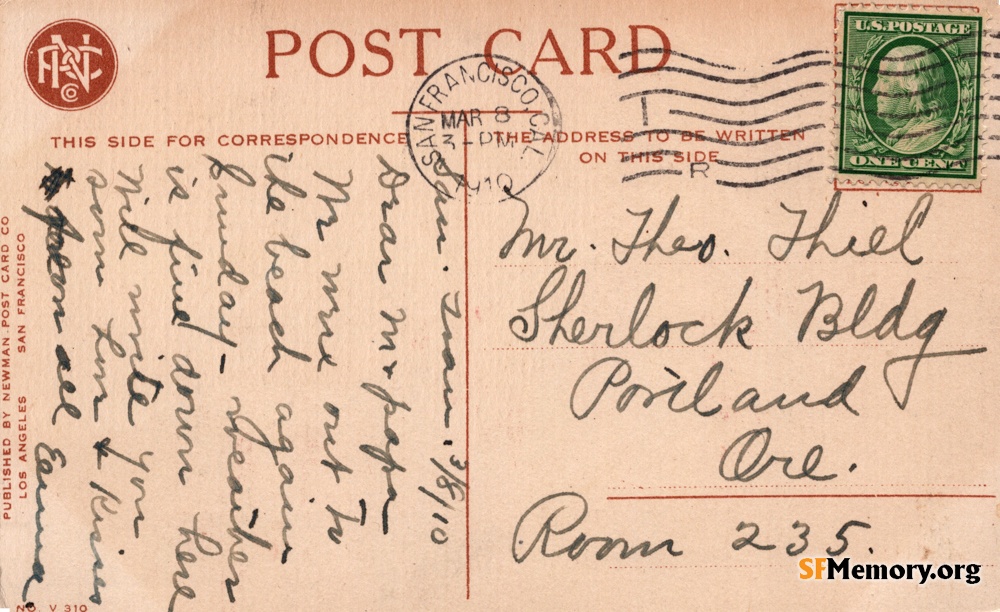 POST CARD
NPC Co
THIS SIDE FOR CORRESPONDENCE
THE ADDRESS TO BE WRITTEN
ON THIS SIDE
SAN FRANCISCO, CAL.
MAR 8
3 - PM
1910
R
U.S. POSTAGE
ONE CENT
San. Fran. 3/8/10
Dear Mr papa
Mr we out to
the beach again
Sunday - weather
is fine down here
Will write you
soon Love & Kisses
from all
Mr. Theo. Thiel
Sherlock Bldg
Portland
Ore.
Room 235.
PUBLISHED BY NEWMAN POST CARD CO
LOS ANGELES SAN FRANCISCO
NO. V 310
SFMemory.org